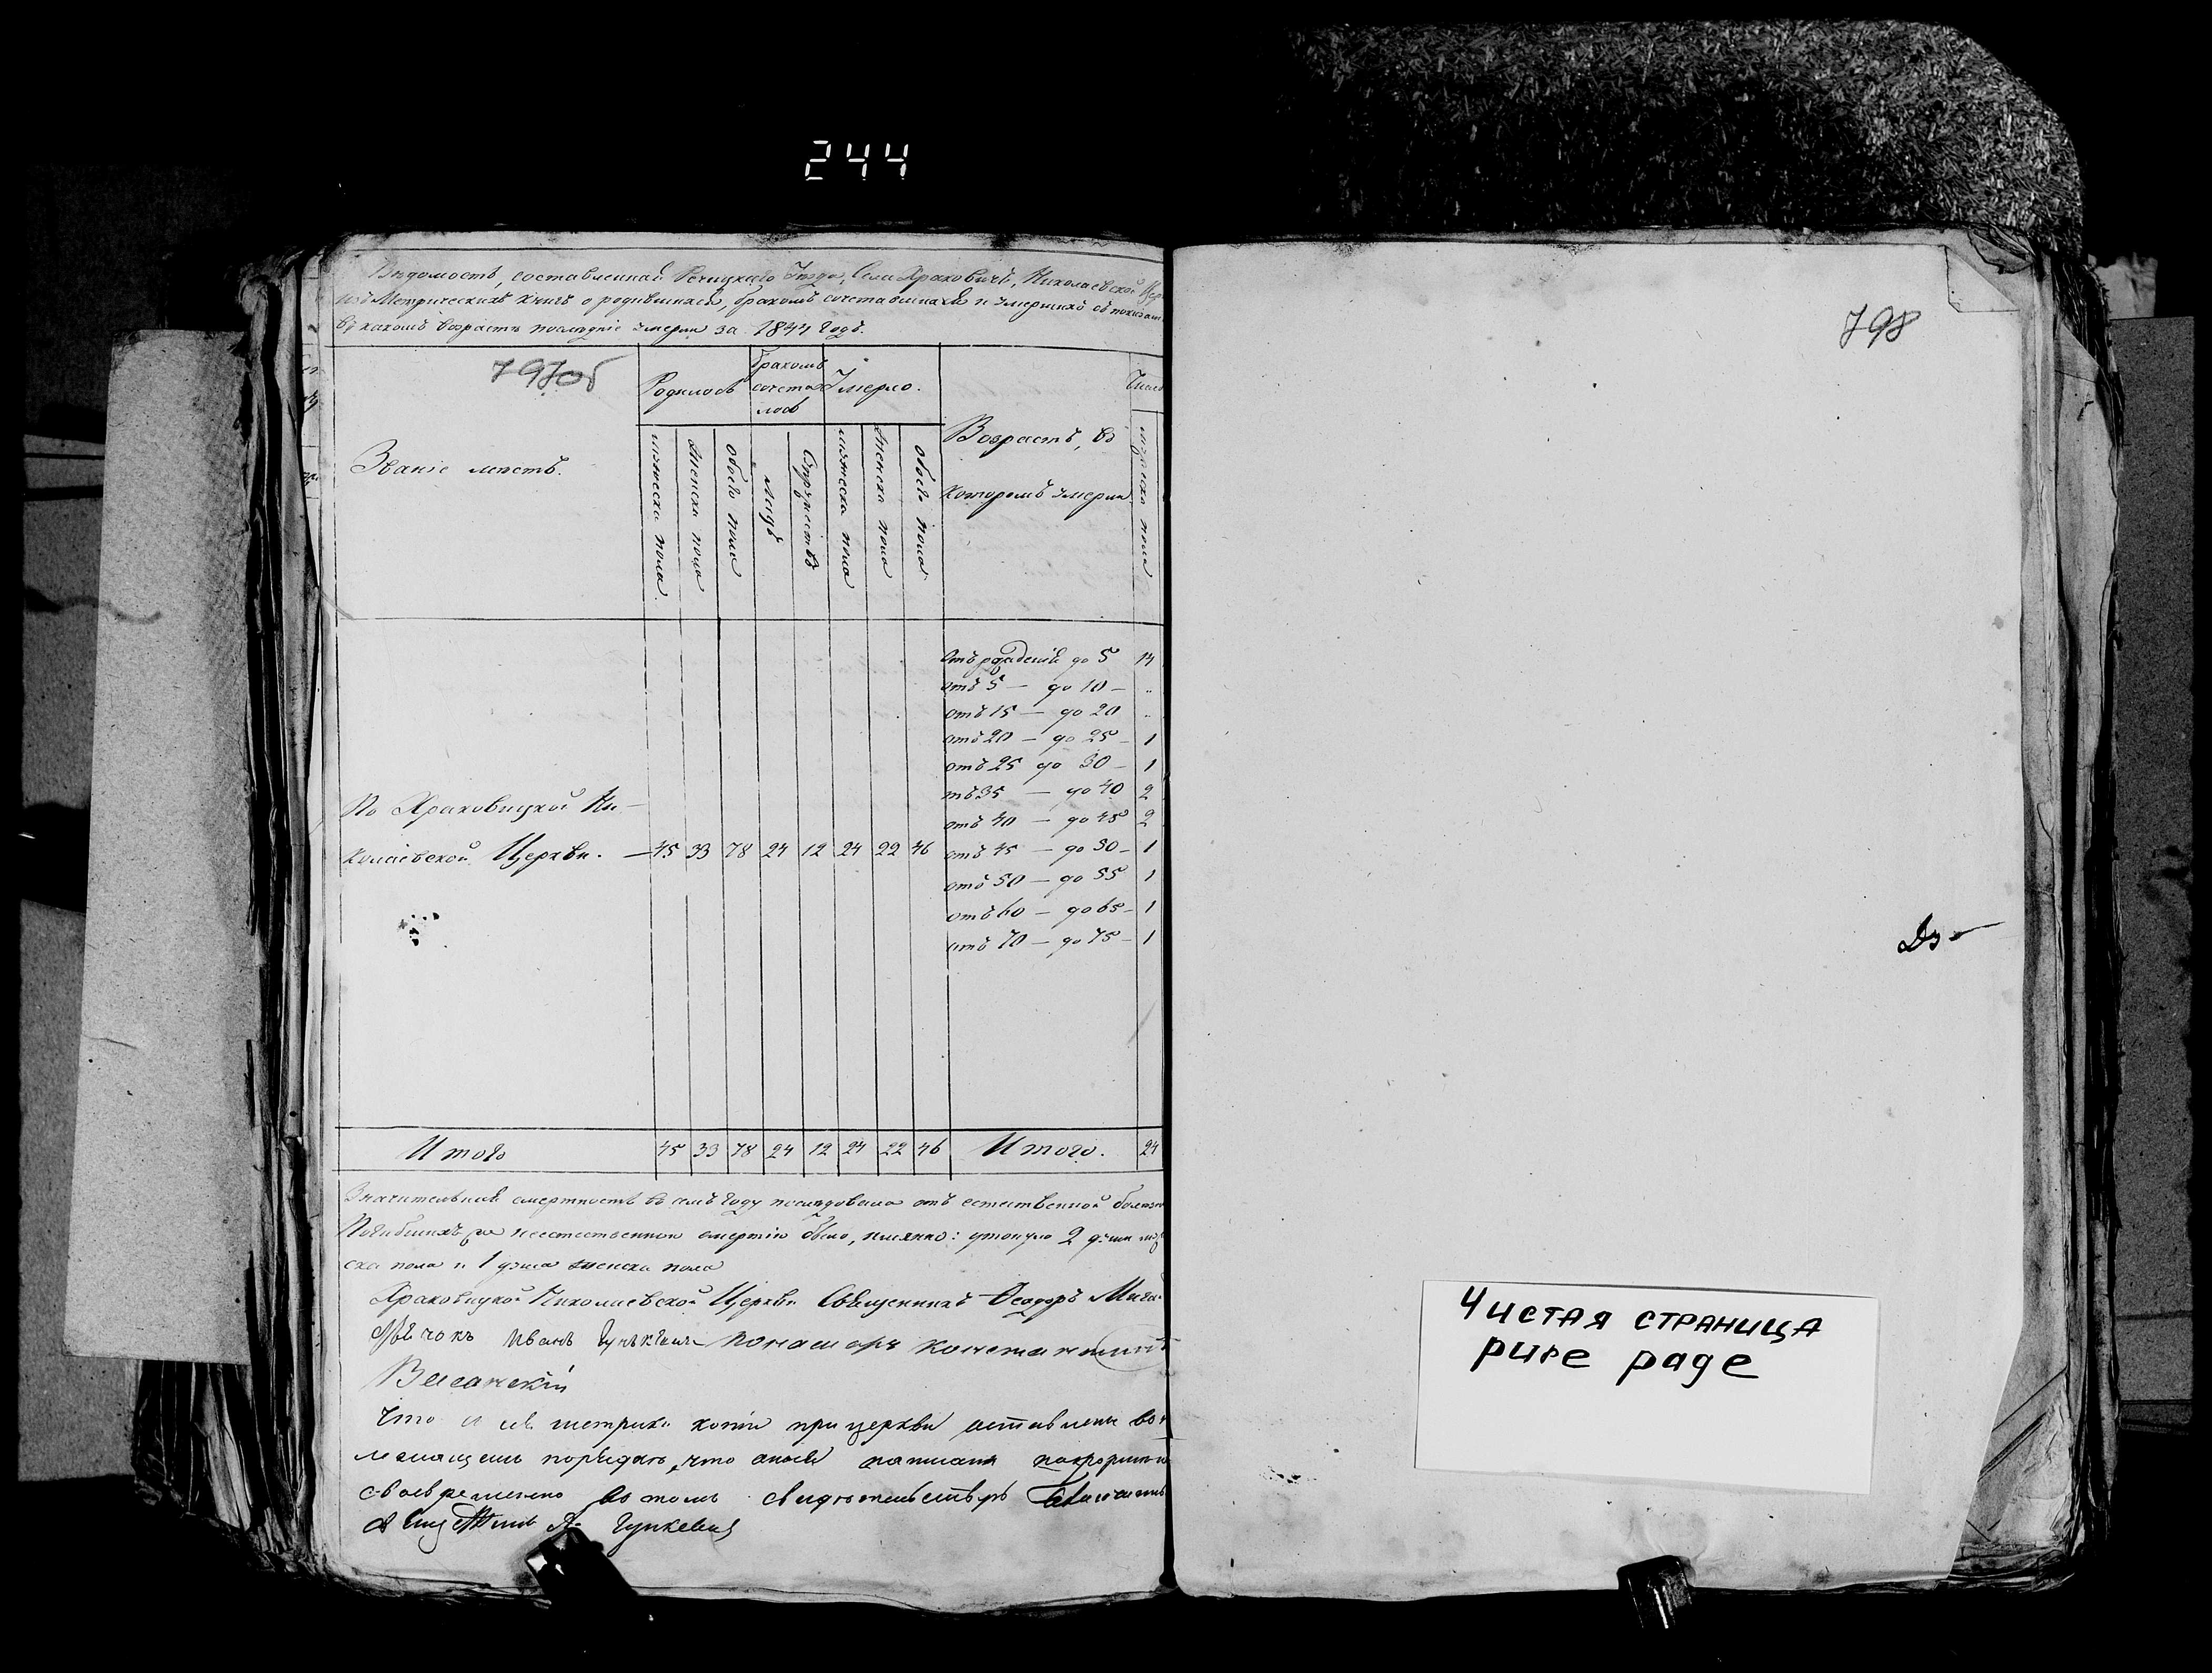 244
Вѣдомость, составленная Речицкаго Уезда, Села Храковичъ, Николаевской Цер
изъ Метрическихъ книгъ о родившихся, бракомъ сочетавшихся и умершихъ съ показан
въ какомъ возрастѣ последніе умерли за 1844 годъ.
797об
Звание местъ.
Родилось
бракомъ сочета лось
Умерло.
Возрастъ, въ которомъ умерли
Число
мужеска пола.
женска пола
обоего пола
лицъ
Супружествъ
мужеска пола
женска пола
обоего пола
мужеска пола
отъ рожденія до 5 14
отъ 5 — до 10 — ..
отъ 15 — до 20 ..
отъ 20 — до 25 — 1
отъ 25 до 30 — 1
тъ 35 — до 40 2
отъ 40 — до 45 2
отъ 45 — до 50 — 1
отъ 50 — до 55 1
отъ 60 — до 65 — 1
отъ 70 — до 75 — 1
По Храковицкой Ни-
колаевской Церкви. — 45 33 78 24 12 24 22 46
Итого 45 33 78 24 12 24 22 46 Итого. 24
Значительная смертность въ семъ году последовала отъ естественной болезн
Погибшихъ неестественною смертію было, имянно: утонуло 2 души муж
ска пола и 1 душа женска пола
Храковицкой Николаевской Церкви Священникъ Феодоръ
Дьячокъ Иванъ Пономарь Константинъ
что и съ метрикъ копіи при церкви оставлены
порядкѣ, что оныя написаны
своевременно въ томъ
798
Чистая страница
pure page